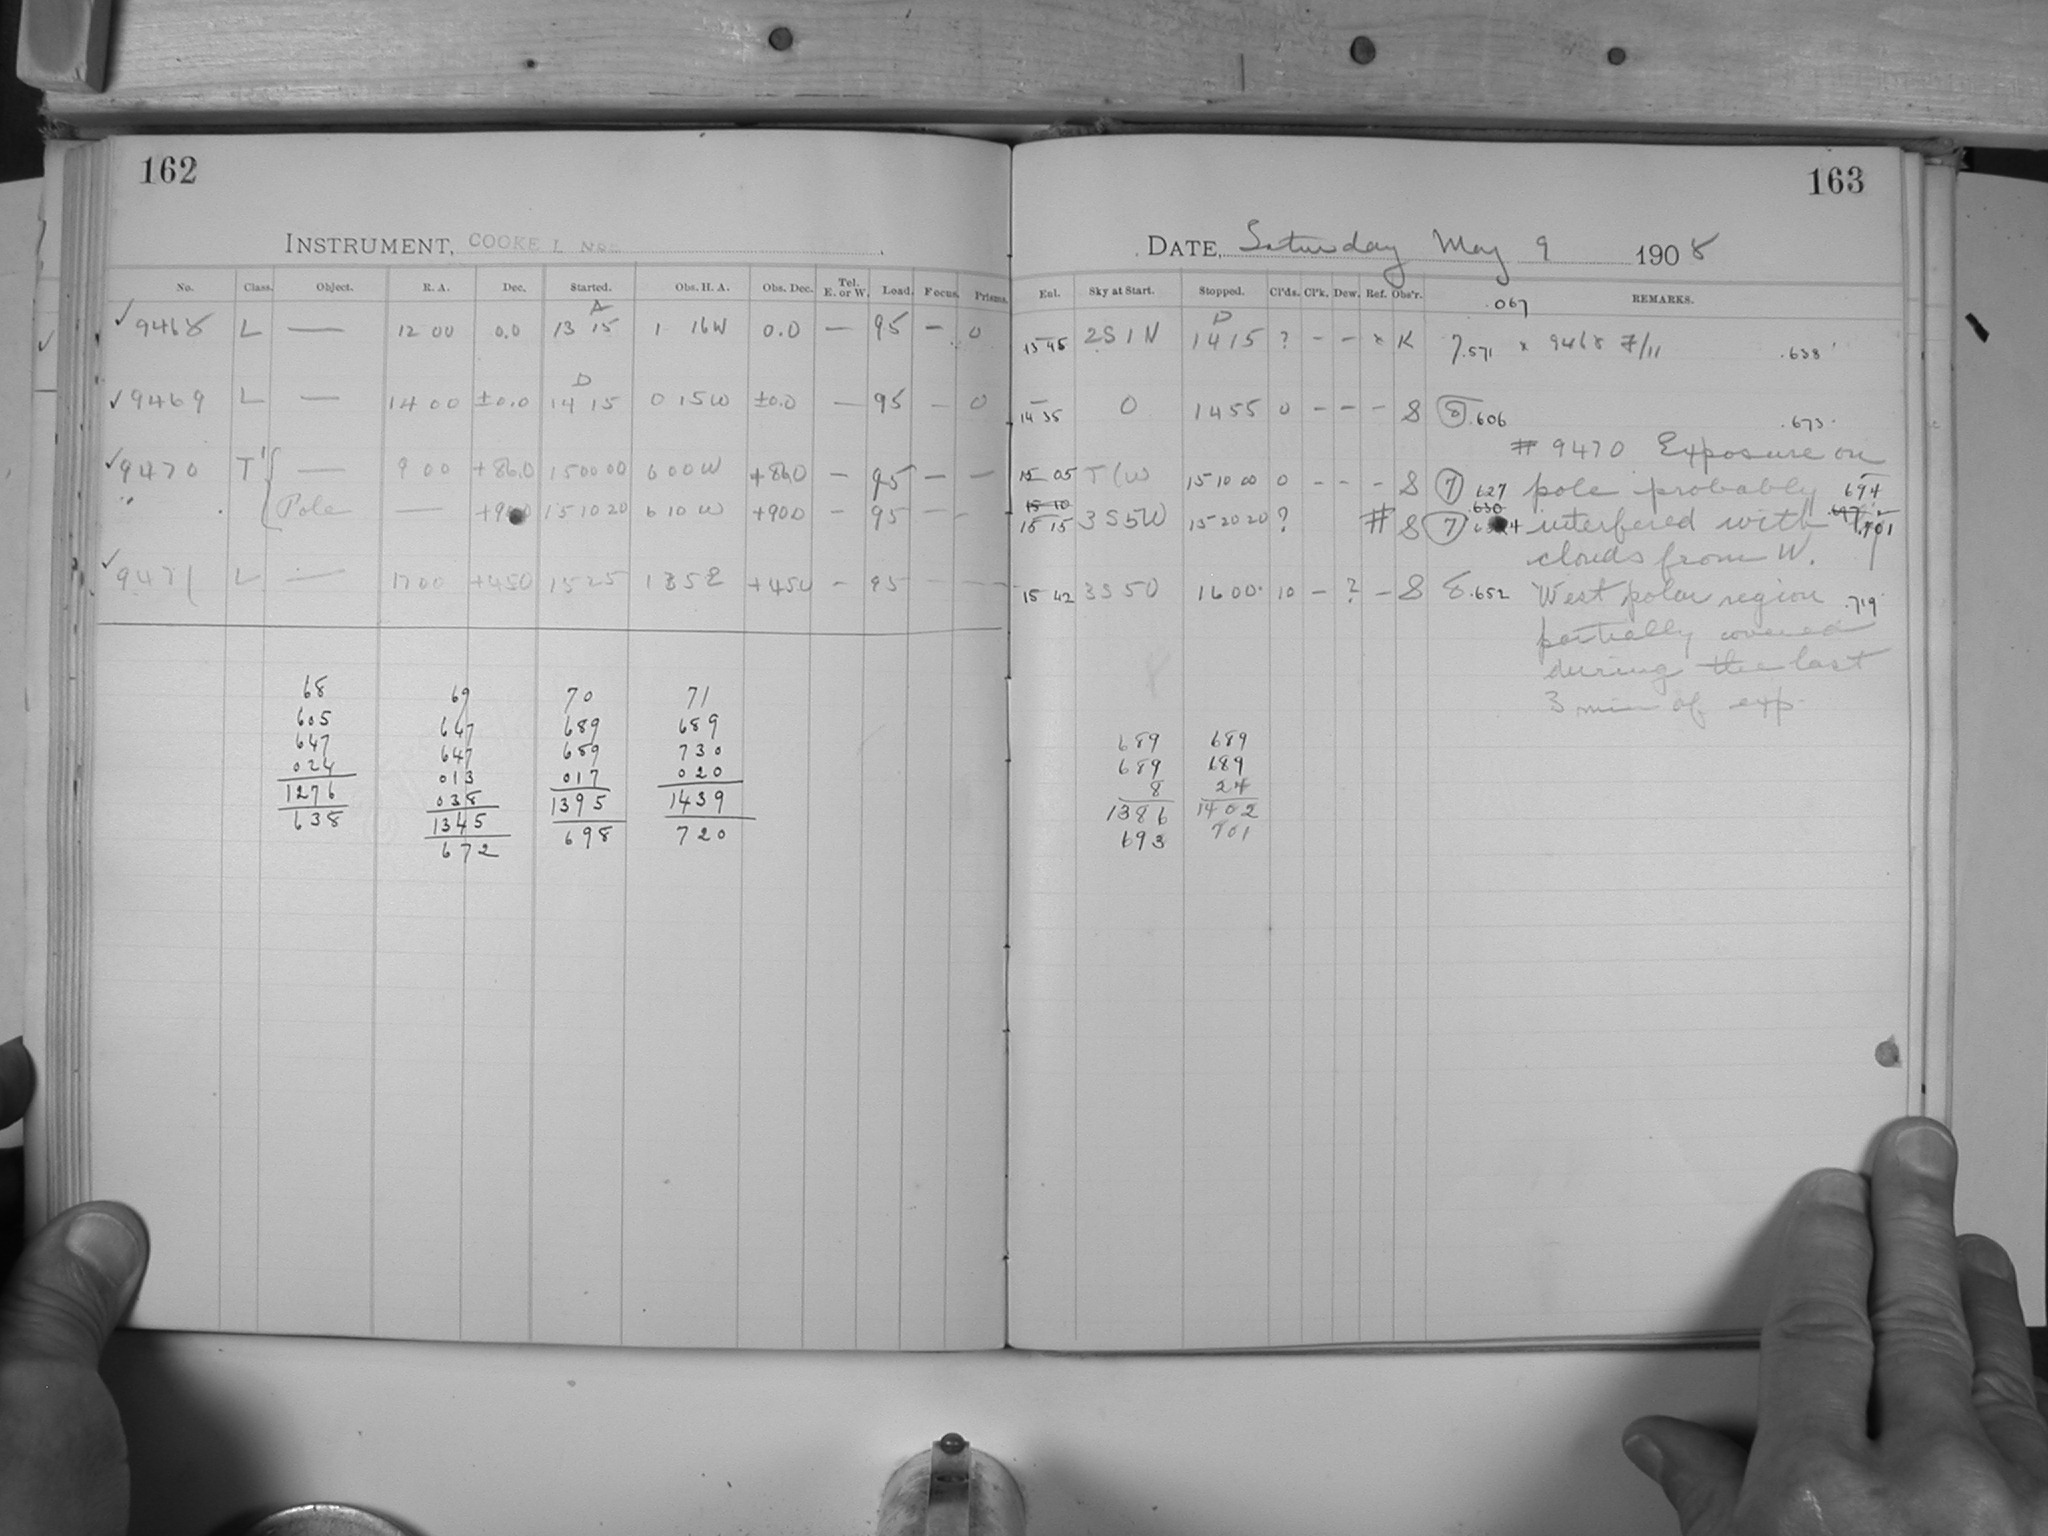 162
INSTRUMENT, COOKE LENS
No. Class. Object. R. A. Dec. Started. Obs. H. A. Obs. Dec. Tel. E. or W. Load. Focus. Prisms.
A
✓ 9468 L — 12 00 0.0 13 15 1 16W 0.0 — 95 — 0
D
✓ 9469 L — 14 00 ±0.0 14 15 0 15W ±0.0 — 95 — 0
✓ 9470 T' — 9 00 +86.0 15 00 00 6 00 W +86.0 — 95 — —
" . Pole — +90.0 15 10 20 6 10 W +90.0 — 95 — —
✓ 9471 L — 17 00 +45.0 15 25 1 35 E +45.0 — 95 — —
68 69 70 71
605 647 689 689
647 647 689 730
024 013 017 020
1276 038 1395 1439
638 1345 698 720
672
163
DATE, Saturday May 9 1908
Enl. Sky at Start. Stopped. Cl'ds. Cl'k. Dew. Ref. Obs'r. .067 REMARKS.
D
13 45 2S1N 14 15 ? - - x K 7.571 x 9468 7/11 .638
14 35 0 14 55 0 - - - S 8 .606 .673
# 9470 Exposure on
15 05 T/W 15 10 00 0 - - - S 7 627 pole probably 694
15 10 630 697
15 15 3S5W 15 20 20 ? # S 7 interfered with .701
clouds from W.
15 42 3S50 16 00 10 - ? - S 8.652 West polar region .719
partially covered
during the last
3 min of exp.
689 689
689 689
8 24
1386 1402
693 701